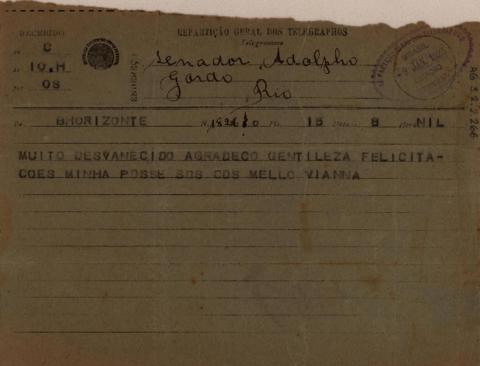 RECEBIDO
REPARTIÇÃO GERAL DOS TELEGRAPHOS
Telegramma
C
10.H
08
Senador Adolpho
Gordo
Rio
BHORIZONTE N. 15 8 NIL
MUITO DESVANECIDO AGRADECO GENTILEZA FELICITA-
COES MINHA POSSE SDS CDS MELLO VIANNA